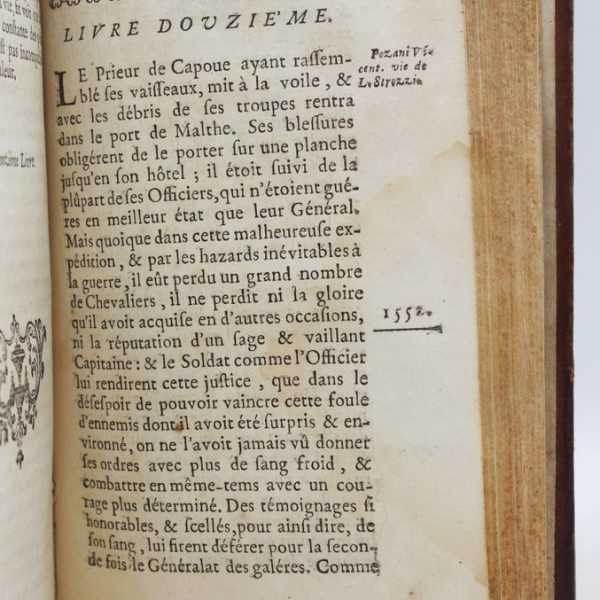 LIVRE DOUZIE'ME.
LE Prieur de Capoue ayant rassem-
blé ses vaisseaux, mit à la voile, &
avec les débris de ses troupes rentra
dans le port de Malthe. Ses blessures
obligérent de le porter sur une planche
jusqu'en son hôtel ; il étoit suivi de la
plûpart de ses Officiers, qui n'étoient gué-
res en meilleur état que leur Général.
Mais quoique dans cette malheureuse ex-
pédition, & par les hazards inévitables à
la guerre, il eût perdu un grand nombre
de Chevaliers, il ne perdit ni la gloire
qu'il avoit acquise en d'autres occasions,
ni la réputation d'un sage & vaillant
Capitaine : & le Soldat comme l'Officier
lui rendirent cette justice, que dans le
désespoir de pouvoir vaincre cette foule
d'ennemis dont il avoit été surpris & en-
vironné, on ne l'avoit jamais vû donner
ses ordres avec plus de sang froid, &
combattre en même-tems avec un cou-
rage plus déterminé. Des témoignages si
honorables, & scellés, pour ainsi dire, de
son sang, lui firent déférer pour la secon-
de fois le Généralat des galéres. Comme
Pozani Vi-
cent. vie de
L. Strozzi.
1552.
constance
est pas